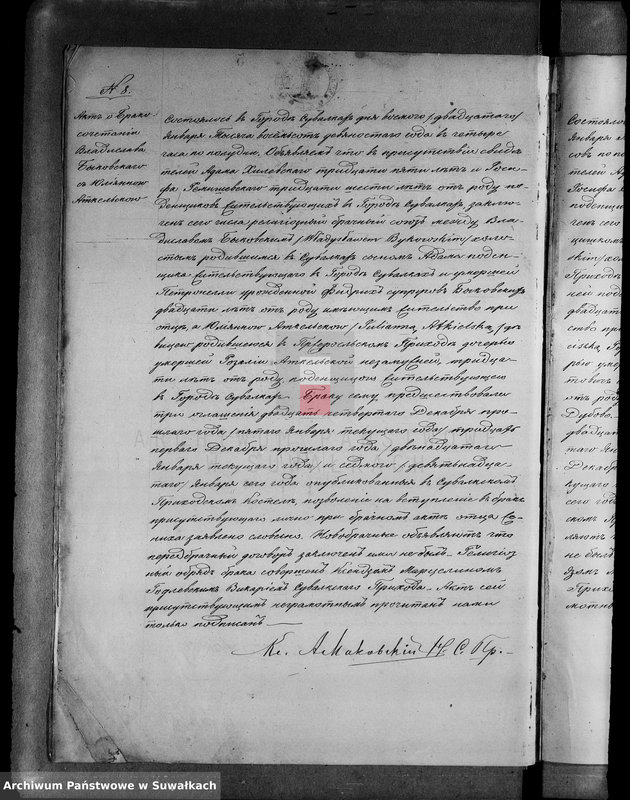 № 8.
Актъ о Брако-
сочетаніи
Владислава
Быковскаго
съ Юліянною
Аткельскою
Состоялось въ Городѣ Сувалкахъ дня восьмого /двадцатаго/
Января Мѣсяца восемьсотъ девяностаго года въ четыре
часа по полудни. Объявляемъ что въ присутствіи свидѣ-
телей Адама Хилевскаго тридцати пяти лѣтъ и
тридцати шести лѣтъ отъ роду по-
денщиковъ жительствующихъ въ Городѣ Сувалкахъ, заклю-
ченъ сего числа религіозный брачный союзъ между Вла-
диславомъ Быковскимъ /Władysławem Bykowskim/ холо-
стымъ родившимся въ Сувалкахъ сыномъ Адама поден-
щика жительствующаго въ Городѣ Сувалкахъ и умершей
Петронели урожденной Фидрихъ супруговъ Быковскихъ
двадцати лѣтъ отъ роду имѣющимъ жительство при
отцѣ, и Юліянною Аткельскою /Julianną Atkielską/ дѣ-
вицею родившеюся въ Приходѣ дочерью
умершей Розаліи Аткельской незамужней, тридца-
ти лѣтъ отъ роду, поденщицею жительствующею
въ Городѣ Сувалкахъ. Браку сему предшествовали
три оглашенія двадцать четвертаго Декабря про-
шлаго года /пятаго Января текущаго года/ тридцать
перваго Декабря прошлаго года /двѣнадцатаго
Января текущаго года/ и седьмого /девятнадца-
таго/ Января сего года опубликованныя въ Сувалкскомъ
Приходскомъ Костелѣ, позволеніе на вступленіе въ бракъ
присутствующаго лично при брачномъ актѣ отца Же-
ниха заявлено словесно. Новобрачные объявляютъ что
предбрачный договоръ заключенъ ими не былъ. Религіоз-
ный обрядъ брака совершенъ Ксендзомъ Марцелиномъ
Годлевскимъ Викаріемъ Сувалкскаго Прихода. Актъ сей
присутствующимъ неграмотнымъ прочитанъ нами
только подписанъ.
Кс. А Маковскій Н. С. Пр.
Состояло
Января
Archiwum Państwowe w Suwałkach